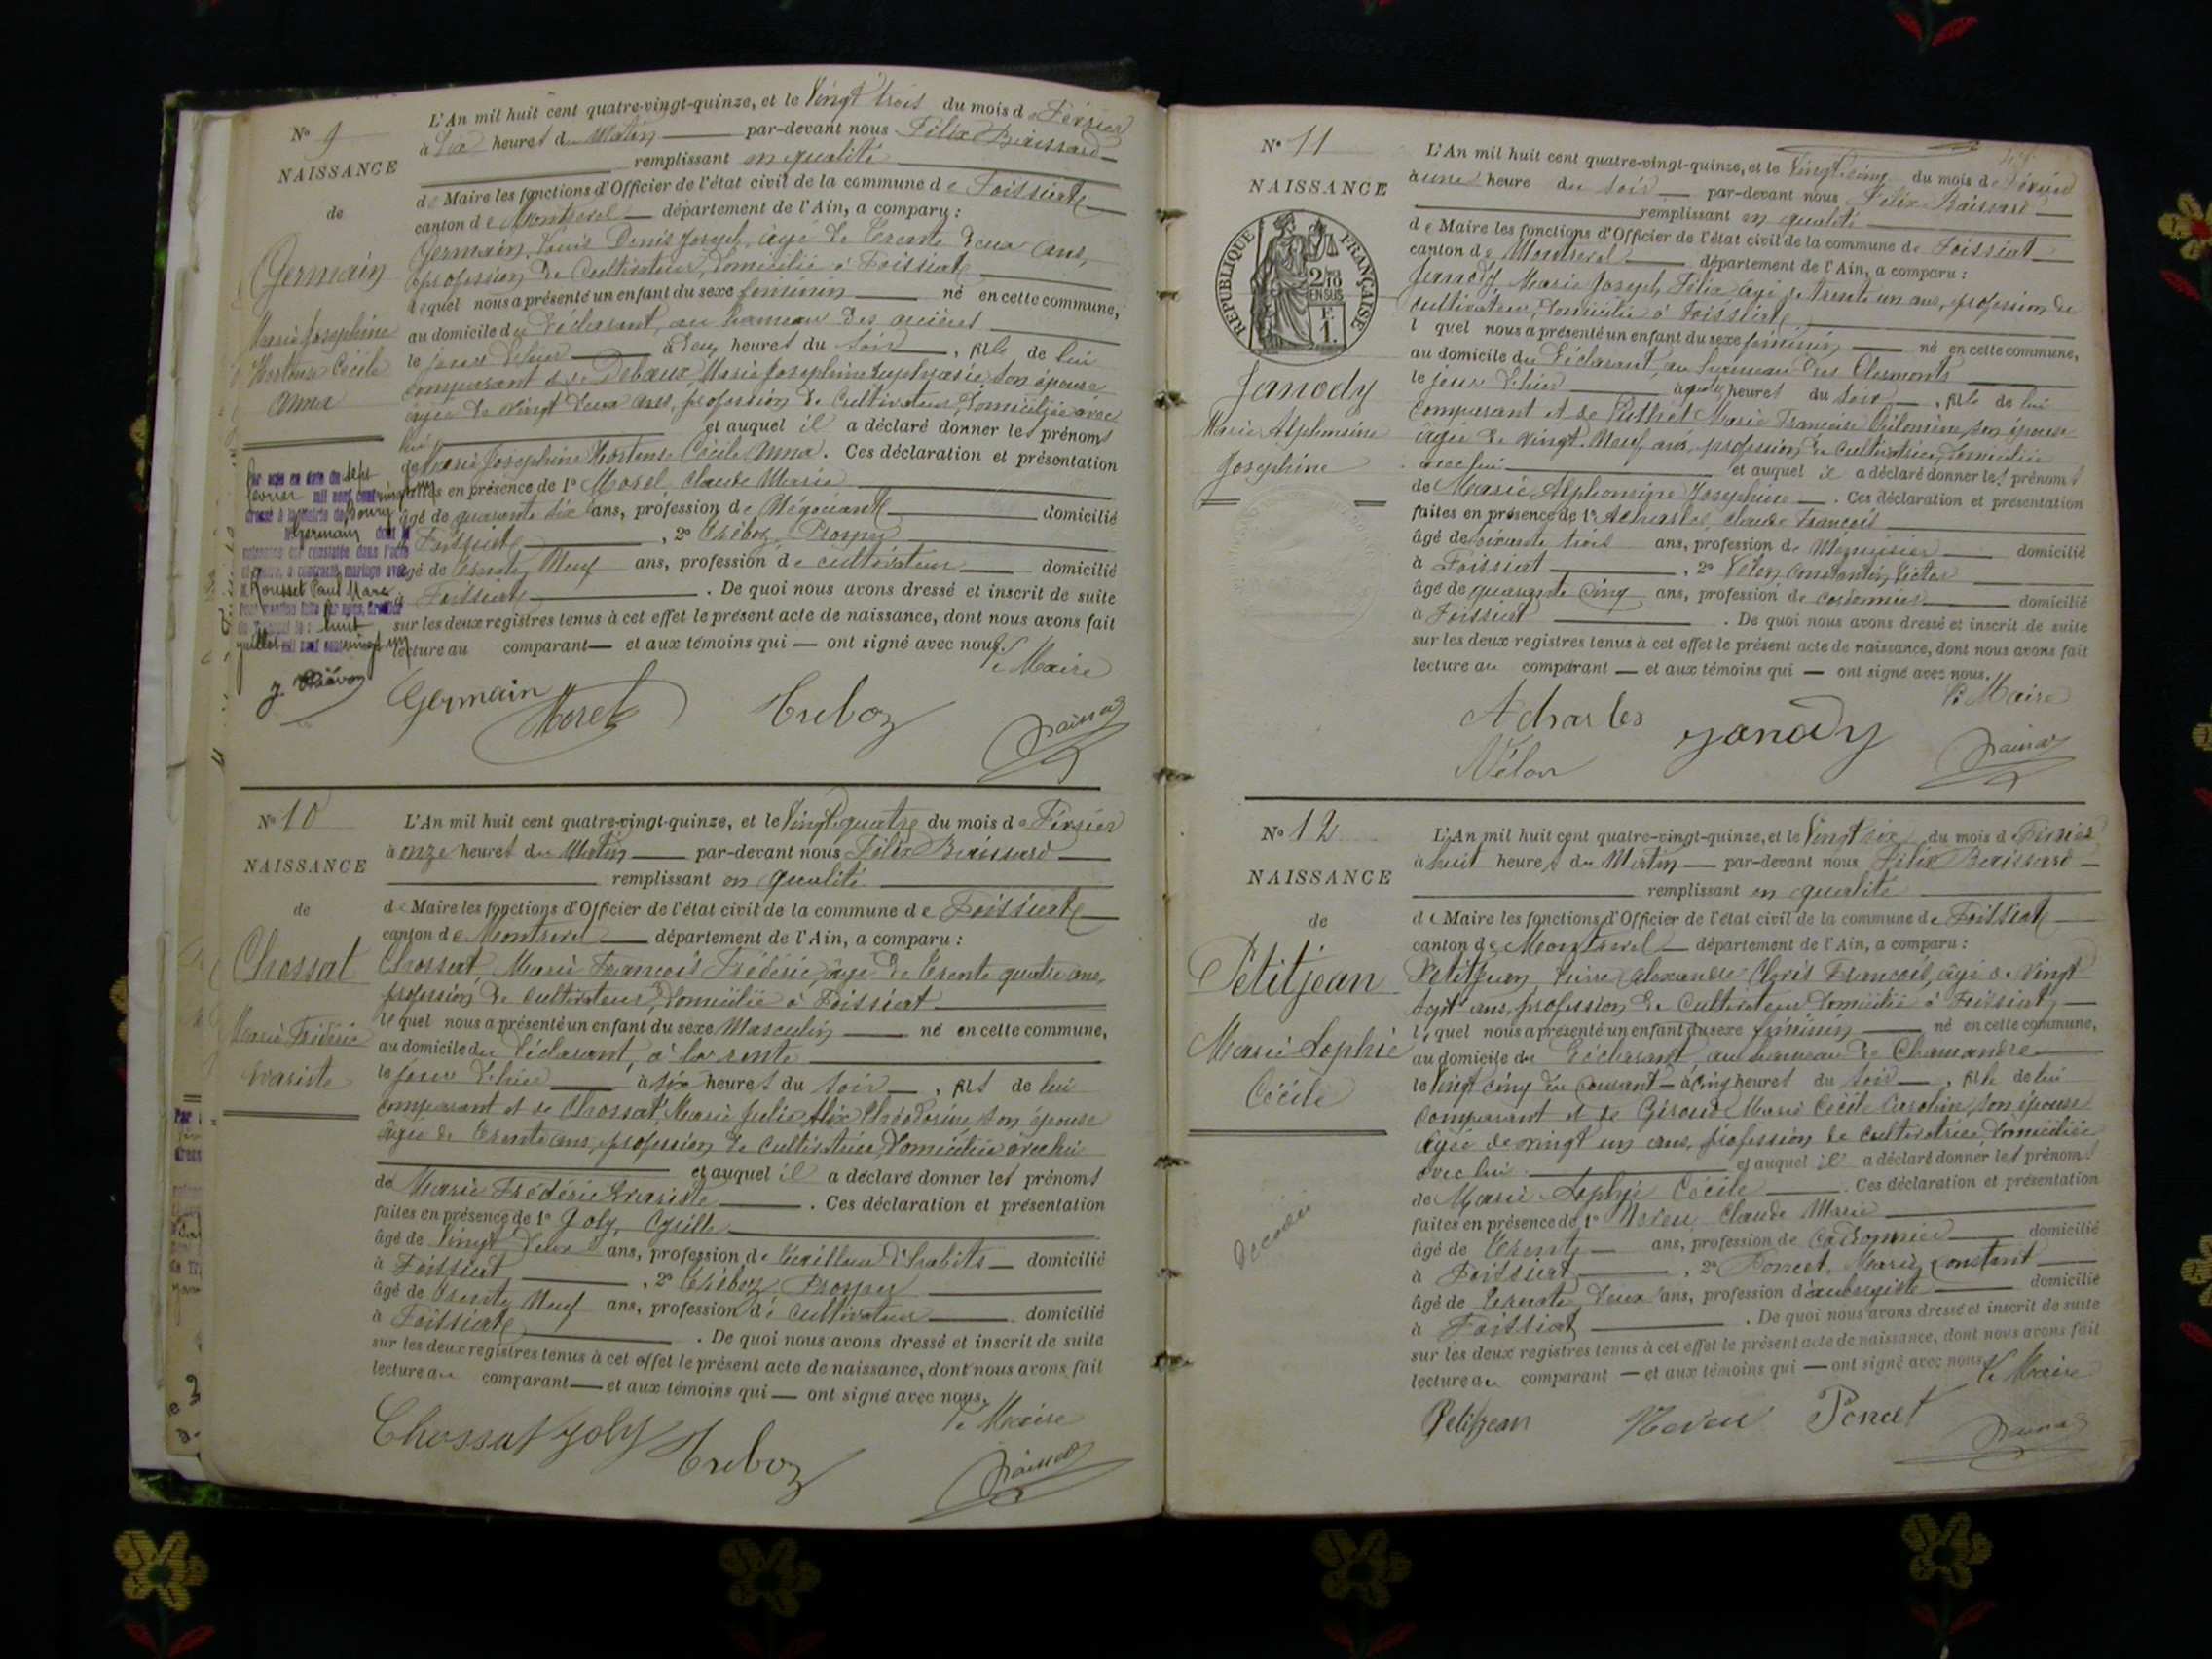 N° 9
NAISSANCE
de
Germain
Marie Joséphine
Hortense Cécile
Anna
L'An mil huit cent quatre-vingt-quinze, et le Vingt trois du mois de Février
à dix heures du Matin par-devant nous Félix Baissard
remplissant en qualité
de Maire les fonctions d'Officier de l'état civil de la commune de Foissiat
canton de Montrevel département de l'Ain, a comparu :
Germain, Louis Denis Joseph, âgé de trente deux ans,
profession de Cultivateur, domicilié à Foissiat
lequel nous a présenté un enfant du sexe féminin né en cette commune,
au domicile du déclarant, au hameau des
le jour d'hier à deux heures du soir, fille de lui
comparant et de Debaux, Marie Joséphine Euphrasie, son épouse
âgée de vingt deux ans, profession de Cultivatrice, domiciliée avec
lui et auquel il a déclaré donner les prénoms
de Marie Joséphine Hortense Cécile Anna. Ces déclaration et présentation
faites en présence de 1° Morel, Claude Marie
âgé de quarante six ans, profession de Négociant domicilié
à Foissiat, 2° Tréboz, Prosper
âgé de trente Neuf ans, profession de cultivateur domicilié
à Foissiat. De quoi nous avons dressé et inscrit de suite
sur les deux registres tenus à cet effet le présent acte de naissance, dont nous avons fait
lecture au comparant et aux témoins qui ont signé avec nous.
Le Maire
Par acte en date du sept
février mil neuf cent vingt un
dressé à la mairie de Bourg
Germain dont la
naissance est constatée dans l'acte
ci-contre, a contracté mariage avec
M. Rousset Paul Marc
huit
juillet mil neuf cent vingt un
Germain
Morel
Treboz
N° 10
NAISSANCE
de
Chossat
Marie Frédéric
Evariste
L'An mil huit cent quatre-vingt-quinze, et le Vingt quatre du mois de Février
à onze heures du Matin par-devant nous Félix Baissard
remplissant en qualité
de Maire les fonctions d'Officier de l'état civil de la commune de Foissiat
canton de Montrevel département de l'Ain, a comparu :
Chossat, Marie François Frédéric, âgé de trente quatre ans,
profession de cultivateur, domicilié à Foissiat
lequel nous a présenté un enfant du sexe Masculin né en cette commune,
au domicile du déclarant, à la
le jour d'hier à six heures du soir, fils de lui
comparant et de Chossat, Marie Julie Alix Théodorine son épouse
âgée de trente ans, profession de cultivatrice, domiciliée avec lui
et auquel il a déclaré donner les prénoms
de Marie Frédéric Evariste. Ces déclaration et présentation
faites en présence de 1° Joly, Cyrille
âgé de Vingt deux ans, profession de tailleur d'habits domicilié
à Foissiat, 2° Tréboz Prosper
âgé de trente Neuf ans, profession de cultivateur domicilié
à Foissiat. De quoi nous avons dressé et inscrit de suite
sur les deux registres tenus à cet effet le présent acte de naissance, dont nous avons fait
lecture au comparant et aux témoins qui ont signé avec nous.
Le Maire
Chossat Joly Treboz
N° 11
NAISSANCE
RÉPUBLIQUE FRANÇAISE
2/10
EN SUS
F.
1.
Janody
Marie Alphonsine
Joséphine
L'An mil huit cent quatre-vingt-quinze, et le Vingt cinq du mois de Février
à une heure du soir par-devant nous Félix Baissard
remplissant en qualité
de Maire les fonctions d'Officier de l'état civil de la commune de Foissiat
canton de Montrevel département de l'Ain, a comparu :
Janody Marie Joseph, Félix âgé de trente un ans, profession de
cultivateur, domicilié à Foissiat
lequel nous a présenté un enfant du sexe féminin né en cette commune,
au domicile du déclarant, au hameau des Clermonts
le jour d'hier à quatre heures du soir, fille de lui
comparant et de Marie Françoise Philomène, son épouse
âgée de vingt Neuf ans, profession de cultivatrice, domiciliée
avec lui et auquel il a déclaré donner les prénoms
de Marie Alphonsine Joséphine. Ces déclaration et présentation
faites en présence de 1° Acharles, Claude François
âgé de soixante trois ans, profession de Menuisier domicilié
à Foissiat, 2° Vélon Constantin, Victor
âgé de quarante cinq ans, profession de cordonnier domicilié
à Foissiat. De quoi nous avons dressé et inscrit de suite
sur les deux registres tenus à cet effet le présent acte de naissance, dont nous avons fait
lecture au comparant et aux témoins qui ont signé avec nous.
Le Maire
Acharles
Janody
Vélon
N° 12
NAISSANCE
de
Petitjean
Marie Sophie
Cécile
L'An mil huit cent quatre-vingt-quinze, et le Vingt six du mois de Février
à huit heures du Matin par-devant nous Félix Baissard
remplissant en qualité
de Maire les fonctions d'Officier de l'état civil de la commune de Foissiat
canton de Montrevel département de l'Ain, a comparu :
Petitjean, Pierre Alexandre François, âgé de vingt
sept ans, profession de Cultivateur domicilié à Foissiat
lequel nous a présenté un enfant du sexe féminin né en cette commune,
au domicile du déclarant, au hameau de Chamandre
le vingt cinq du courant à cinq heures du soir, fille de lui
comparant et de Giroud, Marie Cécile Caroline, son épouse
âgée de vingt un ans, profession de cultivatrice, domiciliée
avec lui et auquel il a déclaré donner les prénoms
de Marie Sophie Cécile. Ces déclaration et présentation
faites en présence de 1° Neveu Claude Marie
âgé de trente ans, profession de domicilié
à Foissiat, 2° Poncet, Marie, Constant
âgé de trente deux ans, profession d'aubergiste domicilié
à Foissiat. De quoi nous avons dressé et inscrit de suite
sur les deux registres tenus à cet effet le présent acte de naissance, dont nous avons fait
lecture au comparant et aux témoins qui ont signé avec nous.
Le Maire
Petitjean Neveu Poncet